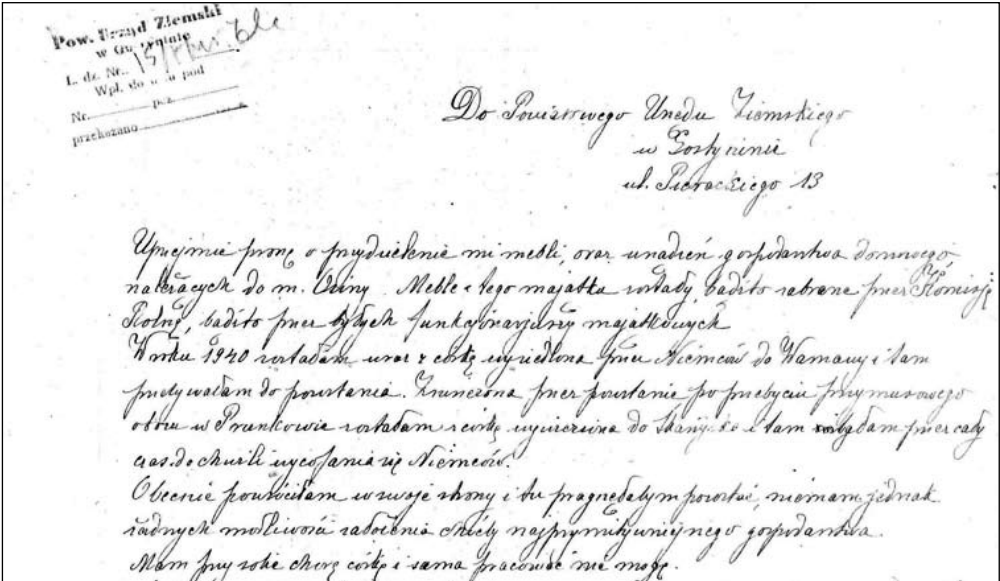 Pow. Urząd Ziemski
w Gostyninie
L. dz. Nr. 15/
Wpł. do pod
Nr. poz.
przekazano
Do Powiatowego Urzędu Ziemskiego
w Gostyninie
ul. Pierackiego 13
Uprzejmie proszę o przydzielenie mi mebli, oraz urządzeń gospodarstwa domowego
należących do m. Osiny. Meble z tego majątku zostały, bądźto zabrane przez Komisję
Rolną, bądźto przez byłych funkcjonarjuszy majątkowych
W roku 1940 zostałam wraz z córką wysiedlona przez Niemców do Warszawy i tam
przebywałam do powstania. Zniszczona przez powstanie po przebyciu przymusowego
obozu w Pruszkowie zostałam z córką wywieziona do i tam przez cały
czas do chwili wycofania się Niemców.
Obecnie powróciłam w swoje strony i tu pragnęłabym pozostać, niemam jednak
żadnych możliwości założenia choćby najprymitywniejszego gospodarstwa.
Mam przy sobie chorą córkę i sama pracować nie mogę.